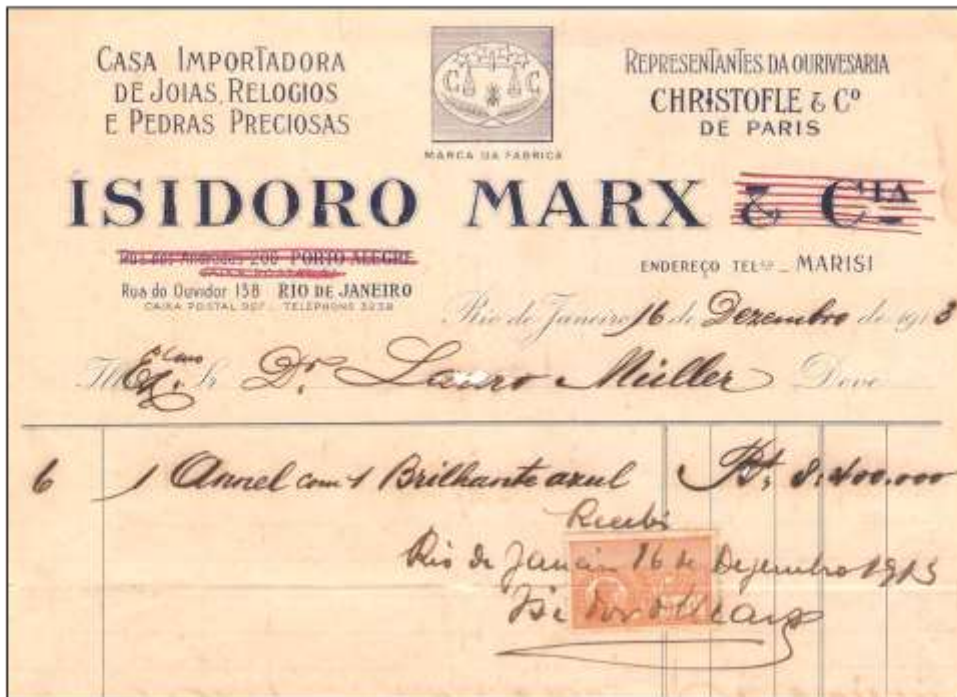 CASA IMPORTADORA
DE JOIAS, RELOGIOS
E PEDRAS PRECIOSAS
C C
MARCA DA FABRICA
REPRESENTANTES DA OURIVESARIA
CHRISTOFLE & Cº
DE PARIS
ISIDORO MARX & CIA
Rua dos Andradas 206 PORTO ALEGRE
ENDEREÇO TELº _ MARISI
Rua do Ouvidor 138 RIO DE JANEIRO
CAIXA POSTAL 907 _ TELEPHONE 3238
Rio de Janeiro 16 de Dezembro de 1913
Illº Exº Sr Dr. Lauro Müller Deve
6 1 Annel com 1 Brilhante azul 8:400.000
Recebi
Rio de Janeiro 16 de Dezembro 1913
Isidoro Marx